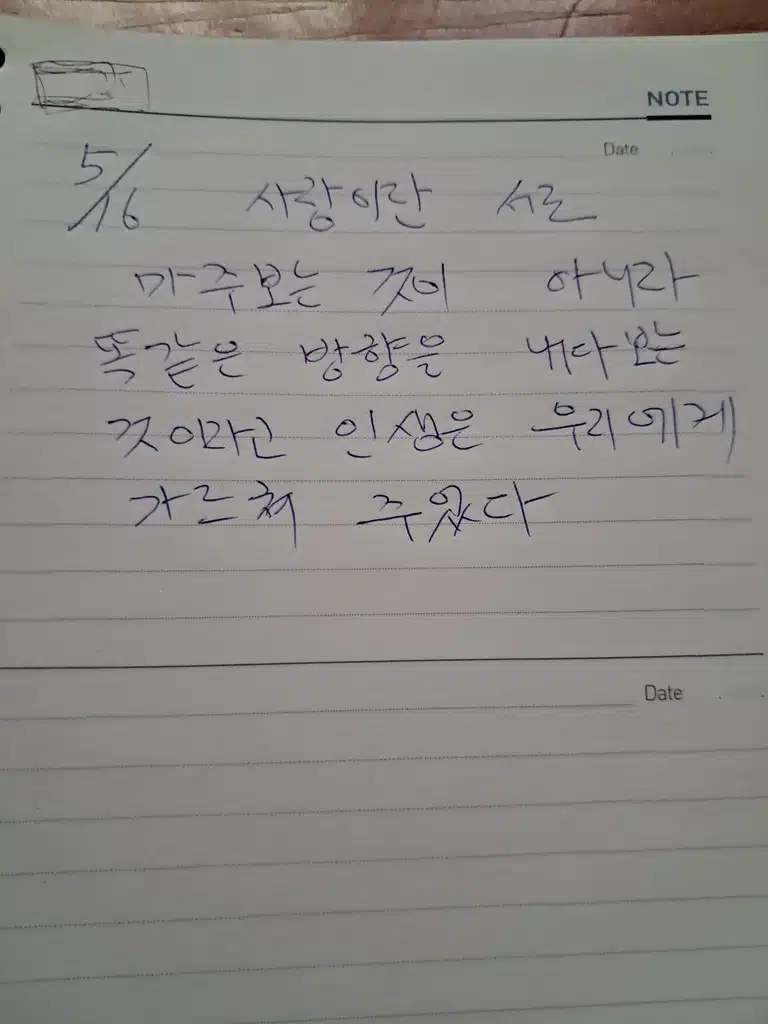 NOTE
Date
5/16 사랑이란 서로
마주보는 것이 아니라
똑같은 방향을 내다보는
것이라고 인생은 우리에게
가르쳐 주었다
Date